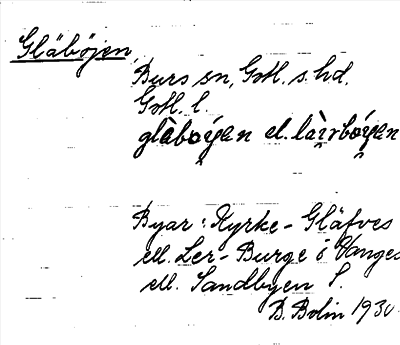 Gläbøjen,
Burs sn, Gotl. s. hd.
Gotl. l.
glàbǫɣen el. làirbǫ́ɣen
Byar: Kyrke-Gläfves
ell. Ler-Burge o Vanges
ell. Sandbyen S.
B. Bolin 1930.